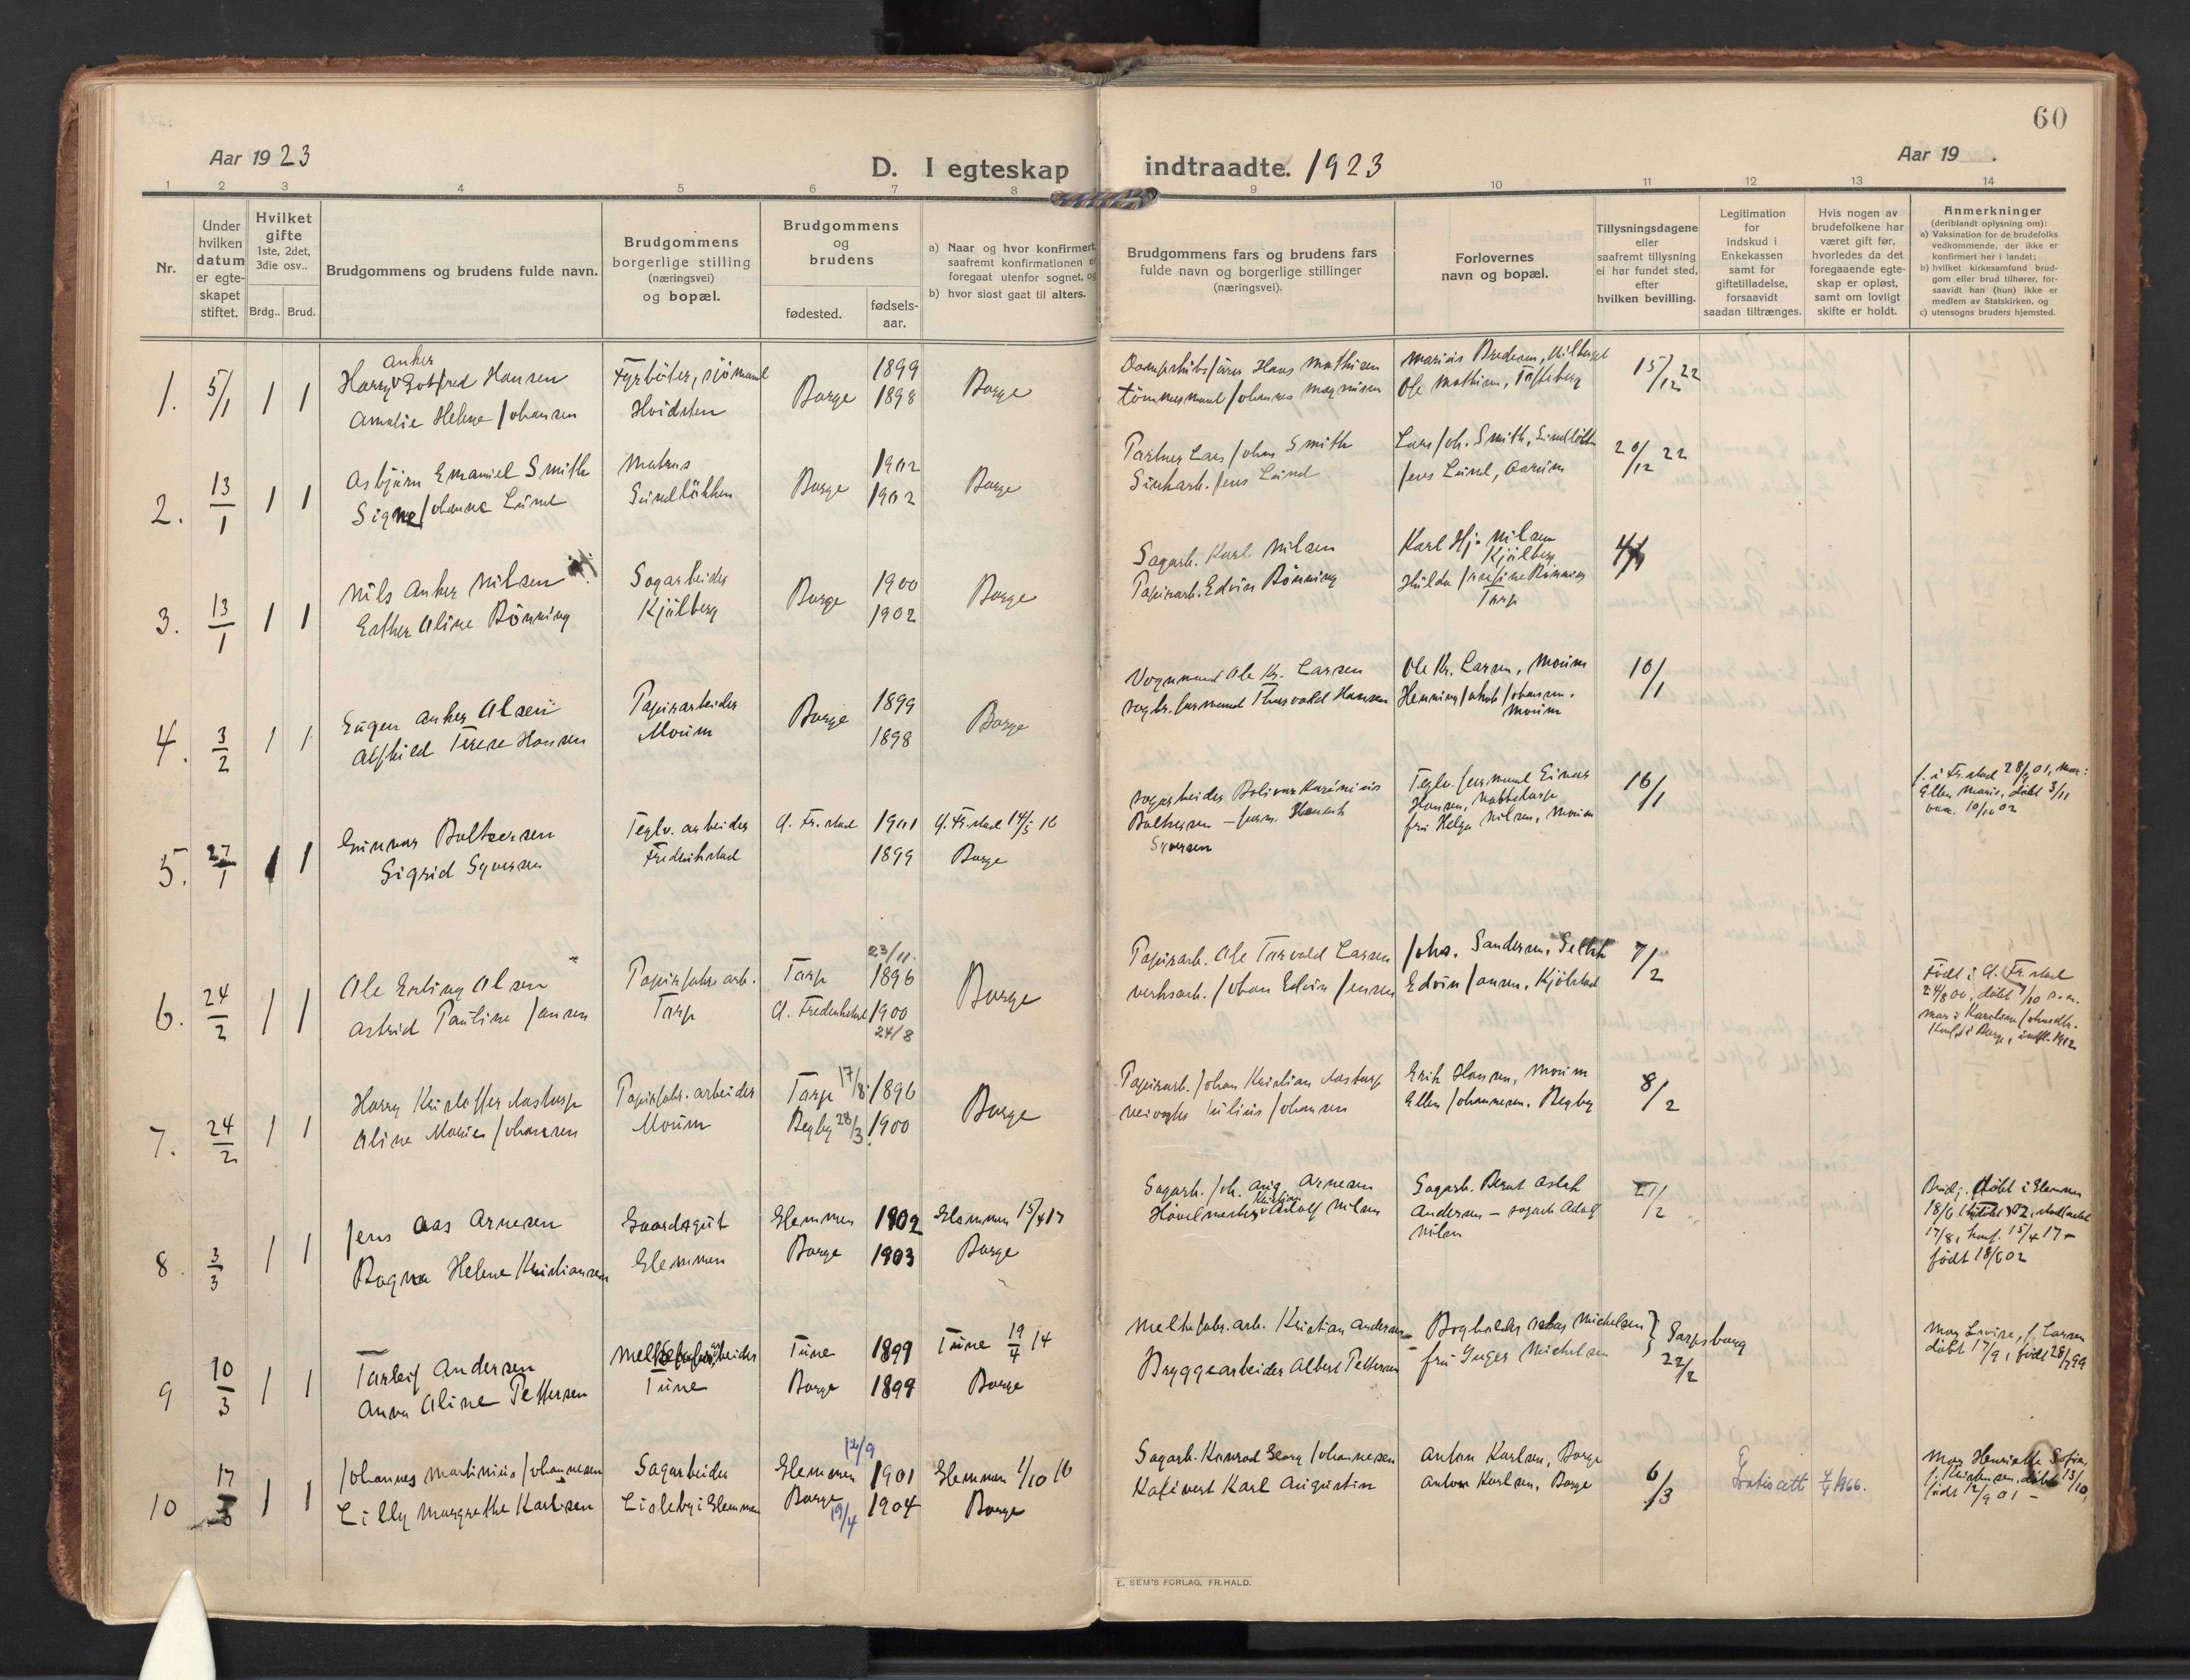 60
Aar 1923
D. I egteskap indtraadte. 1923
Aar 19   .
1 2 3 4 5 6 7 8 9 10 11 12 13 14
Nr.
Under hvilken datum er egte-skapet stiftet.
Hvilket gifte 1ste, 2det, 3die osv..
Brdg.. Brud.
Brudgommens og brudens fulde navn.
Brudgommens borgerlige stilling (næringsvei) og bopæl.
Brudgommens og brudens
fødested.
fødsels-aar.
a) Naar og hvor konfirmert, saafremt konfirmationen er foregaat utenfor sognet, og
b) hvor sidst gaat til alters.
Brudgommens fars og brudens fars fulde navn og borgerlige stillinger (næringsvei).
Forlovernes navn og bopæl.
Tillysningsdagene eller saafremt tillysning ei har fundet sted, efter hvilken bevilling.
Legitimation for indskud i Enkekassen samt for giftetilladelse, forsaavidt saadan tiltrænges.
Hvis nogen av brudefolkene har været gift før, hvorledes da det foregaaende egte-skap er opløst, samt om lovligt skifte er holdt.
Anmerkninger (deriblandt oplysning om):
a) Vaksination for de brudefolks vedkommende, der ikke er konfirmert her i landet;
b) hvilket kirkesamfund brud-gom eller brud tilhører, for-saavidt han (hun) ikke er medlem av Statskirken, og
c) utensogns bruders hjemsted.
1. 5/1 1 1
Anker
Harry Gotfred Hansen
Amalie Helene Johansen
Fyrbøter, sjømand
Hvidsten
Borge
1899
1898
Borge
Hans Mathisen
tømmermand Johannes Magnussen
Marius Bredesen,
Ole Mathisen, Tofteberg
15/12 22
2. 13/1 1 1
Asbjørn Emanuel Smith
Signe Johanne Lund
Matros
Sundløkken
Borge
1902
1902
Borge
Partner Lars Johan Smith
Jens Lund
Lars Joh. Smith, Sundløkken
Jens Lund, Aarum
20/12 22
3. 13/1 1 1
Nils Anker Nilsen
Esther Aline Bønning
Sagarbeider
Kjølberg
Borge
1900
1902
Borge
Sagarb. Karl Nilsen
Papirarb. Edvin Bønning
Karl Hj. Nilsen
Kjølberg
Hulda Josefine Bønning
Torp
4. 3/2 1 1
Eugen Anker Olsen
Alfhild Terese Hansen
Papirarbeider
Moum
Borge
1899
1898
Borge
Vognmand Ole Kr. Larsen
sagbr. formand Thorvald Hansen
Ole Kr. Larsen, Moum
Henning Jakob Johansen.
Moum
10/1
5. 27/1 1 1
Gunnar Baltzersen
Sigrid Syversen
Teglv. arbeider
Fredrikstad
Gl. Fr.stad
1901
1899
Gl. Fr.stad 14/5 16
Borge
sagarbeider Bolivar Karinius
Baltzersen - form.
Syversen
Teglv. formand Einar
Hansen, Nabbetorp
fru Helga Nilsen, Moum
16/1
f. i Fr.stad 28/9 01, mor:
Ellen Marie, døbt 3/11
vac. 10/10 02
6. 24/2 1 1
Ole Erling Olsen
Astrid Pauline Jansen
Papirfabr. arb.
Torp
Torp
Gl. Fredrikstad
23/11.
1896
1900
24/8
Borge
Papirarb. Ole Torvald Larsen
verksarb. Johan Edvin Jensen
Johs. Sandersen, Sellebk
Edvin Jansen, Kjølstad
7/2
Født i Gl. Fr.stad
24/8 00, døbt 7/10 s. a.
mor: Karoline Johnsdtr.
Konf. i Borge, indfl. 1912
7. 24/2 1 1
Harry Kristoffer Aastorp
Aline Marie Johansen
Papirfabr. arbeider
Moum
Torp 17/8
Begby 28/3
1896
1900
Borge
Papirarb. Johan Kristian Aastorp
veivogter Julius Johansen
Erik Hansen, Moum
Ellen Johannesen. Begby
8/2
8. 3/3 1 1
Jens Aas Arnesen
Ragna Helene Kristiansen
Gaardsgut
Glemmen
Glemmen
Borge
1902
1903
Glemmen 15/4 17
Borge
Sagarb. Joh. Aug. Arnesen
Høvelmester Kristian Adolf Nilsen
Sagarb. Bernt Aslak
Andersen - sagarb. Adolf
Nilsen
/2
Brudg. døbt i Glemmen
17/8, konf. 15/4 17 -
født 18/6 02
9 10/3 1 1
Torleif Andersen
Anna Aline Pettersen
Tune
Tune
Borge
1899
1899
Tune 19/4 14
Borge
Melkefabr. arb. Kristian Andersen
Bryggearbeider Albert Pettersen
Bogholder Michelsen } Sarpsborg
fru Inger Michelsen
22/2
Mor Lovise, f. Larsen
døbt 17/9, født 28/7 99
10 17/3 1 1
Johannes Martinius Johannesen
Lilly Margrethe Karlsen
Sagarbeider
Lisleby i Glemmen
Glemmen 12/9
Borge 19/4
1901
1904
Glemmen 1/10 16
Borge
Sagarb. Konrad Georg Johannesen
Kafévert Karl Augustin
Anton Karlsen, Borge
Anton Karlsen, Borge
6/3
Gratisatt 1966.
Mor Henriette Sofie,
f. Kristensen, døbt 13/10,
født 12/9 01 -
E. SEM'S FORLAG, FR.HALD.